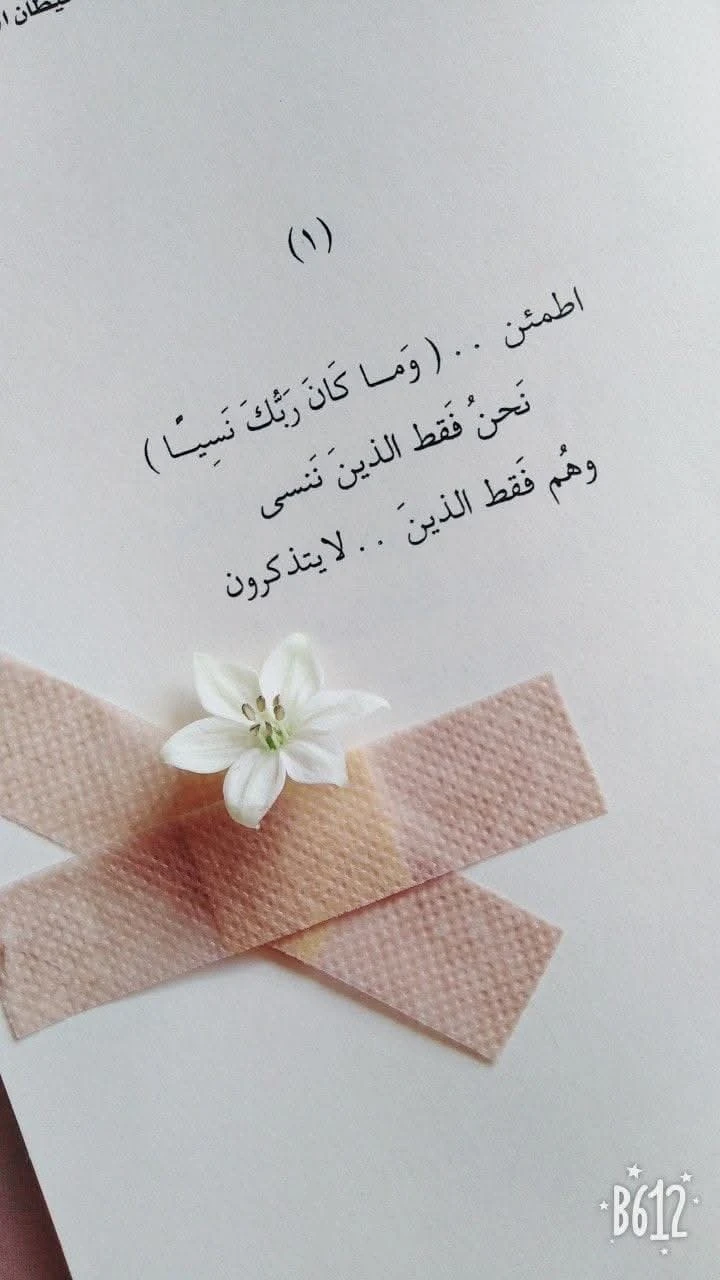 (١)
اطمئن . . ( وَمـا كَانَ رَبُّكَ نَسِيـًا )
نَحنُ فَقط الذينَ نَنسى
وهُم فَقط الذينَ . . لايتذكرون
B612